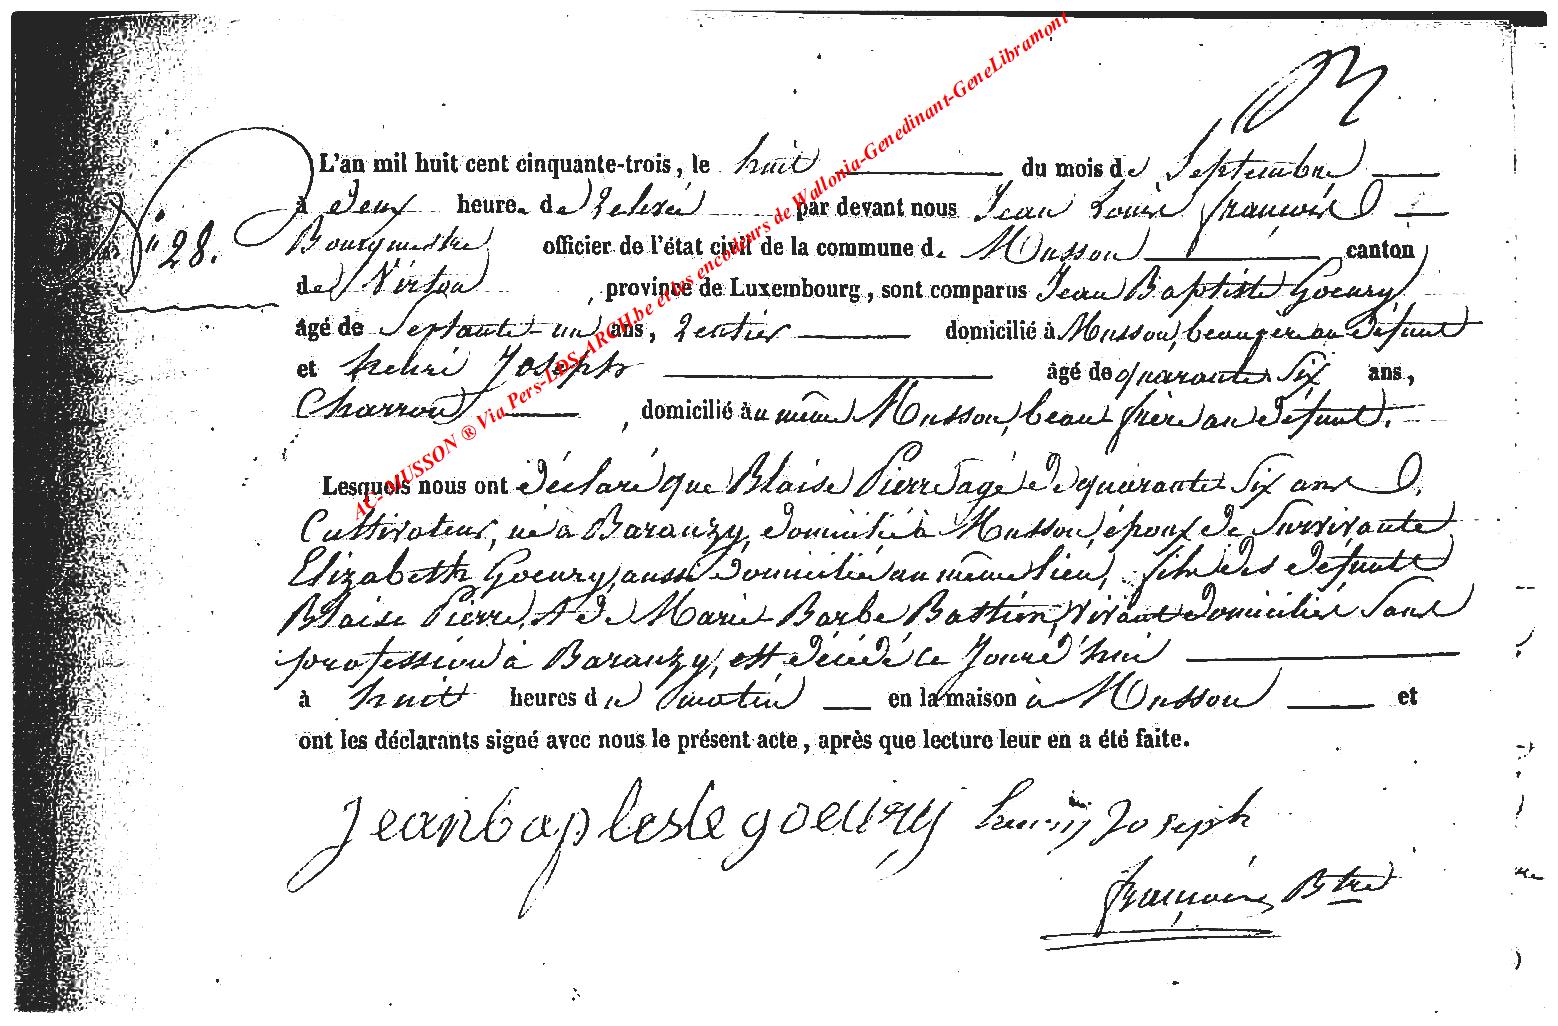 L'an mil huit cent cinquante-trois, le huit du mois de Septembre
N° 28.
à deux heure de relevée par devant nous Jean Louis françois
Bourgmestre officier de l'état civil de la commune de Musson canton
de Virton, province de Luxembourg, sont comparus Jean Baptiste Goeury
âgé de Septante-un ans, rentier domicilié à Musson, beau père au défunt
et henri Joseph âgé de quarante Six ans,
Charron, domicilié au même Musson, beau frère au défunt.
Lesquels nous ont déclaré que Blaise Pierre agé de quarante Six ans
Cultivateur, né à Baranzy, domicilié à Musson, époux de Survivante
Elizabeth Goeury, aussi domiciliée au même lieu, fils des défunts
Blaise Pierre, et de Marie Barbe Bastien, vivant domiciliés Sans
profession à Baranzy, est décédé ce Jourd'hui
à huit heures du matin en la maison à Musson et
ont les déclarants signé avec nous le présent acte, après que lecture leur en a été faite.
jean bapteste goeury henry Joseph
françois Btre
AC - MUSSON ® Via Pers-LDS-ARCH.be et les encodeurs de Wallonia-Genedinant-GeneLibramont